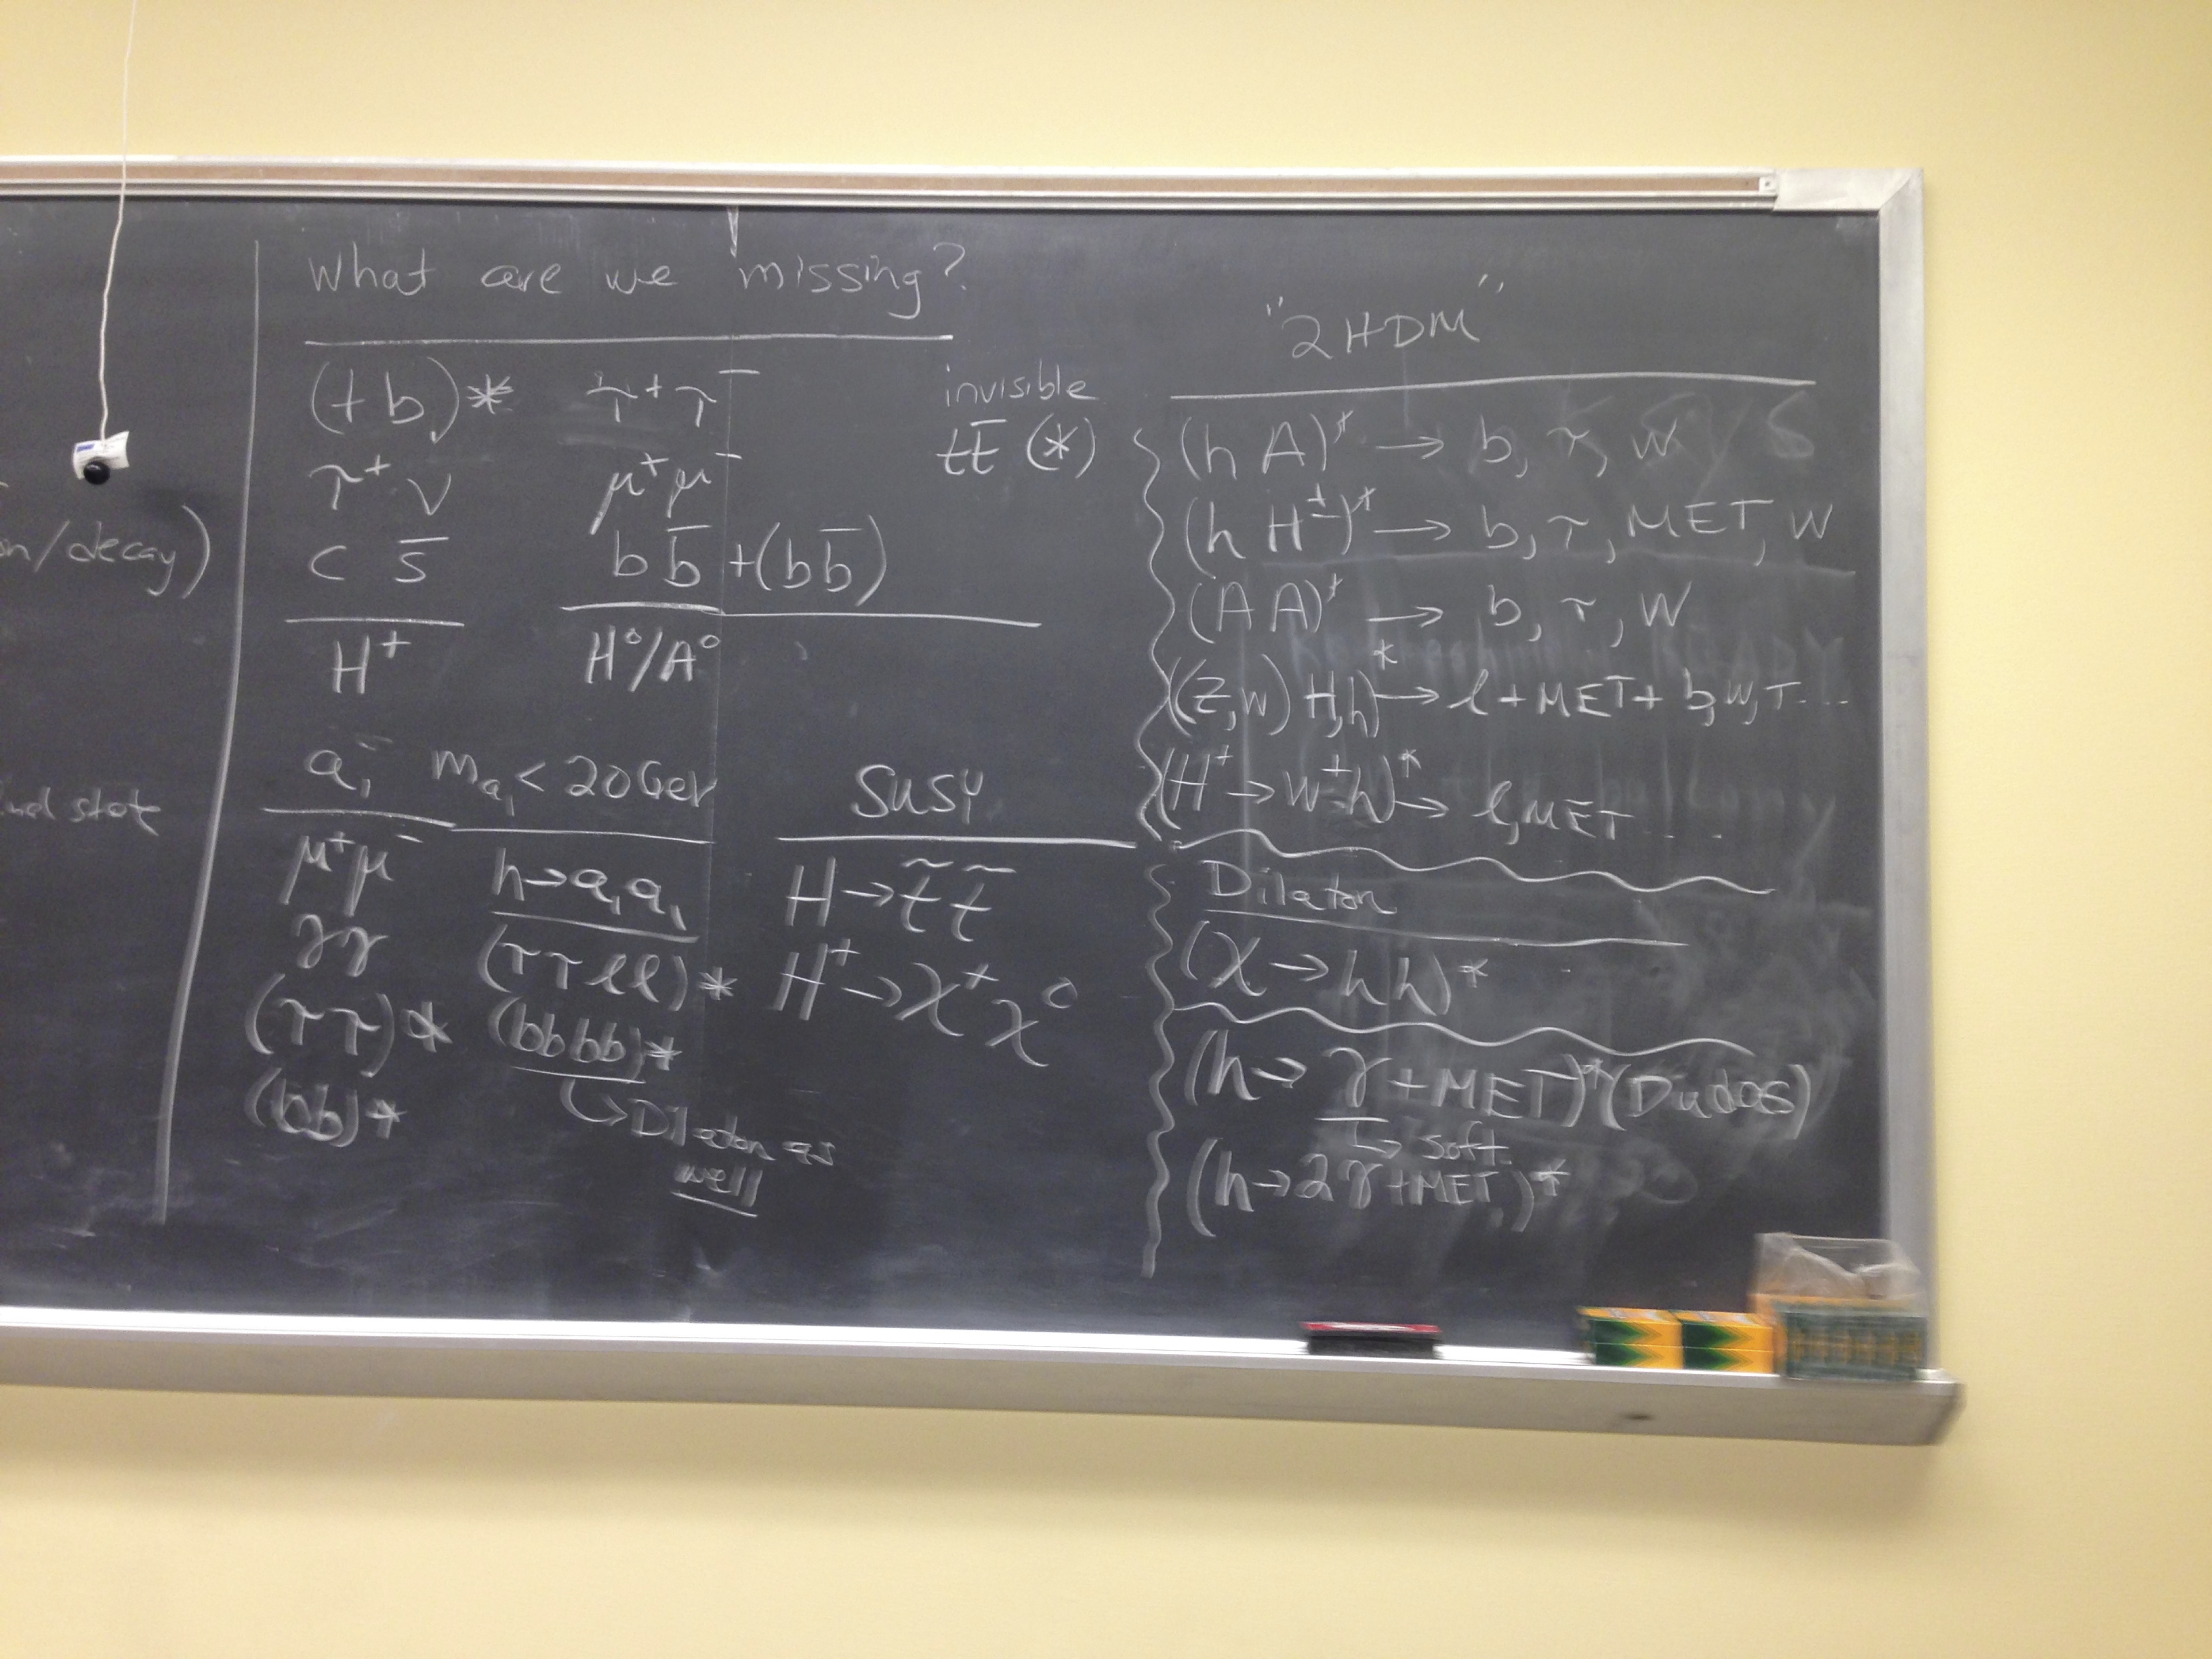 on/decay)
state
What are we missing?
(t b)* τ⁺τ⁻
τ⁺ν μ⁺μ⁻
c s̅ b b̅ + (b b̅)
H⁺ H⁰/A⁰
invisible
t t̅ (*)
a₁ m_a₁ < 20 GeV
μ⁺μ⁻ h→a₁a₁
γγ (ττℓℓ)*
(ττ)* (bbbb)*
(bb)* ↳Dilaton as
well
SUSY
H→t̃ t̃
H⁺→χ⁺χ⁰
"2HDM"
(h A)* → b, τ, W
(h H±)* → b, τ, MET, W
(A A)* → b, τ, W
((Z,W) H,h)* → ℓ + MET + b, W, τ...
(H⁺→W⁺h)* → ℓ, MET ....
Dilaton
(χ → hh)*
(h→ γ + MET)* (Dudas)
↳ soft
(h→2γ+MET)*